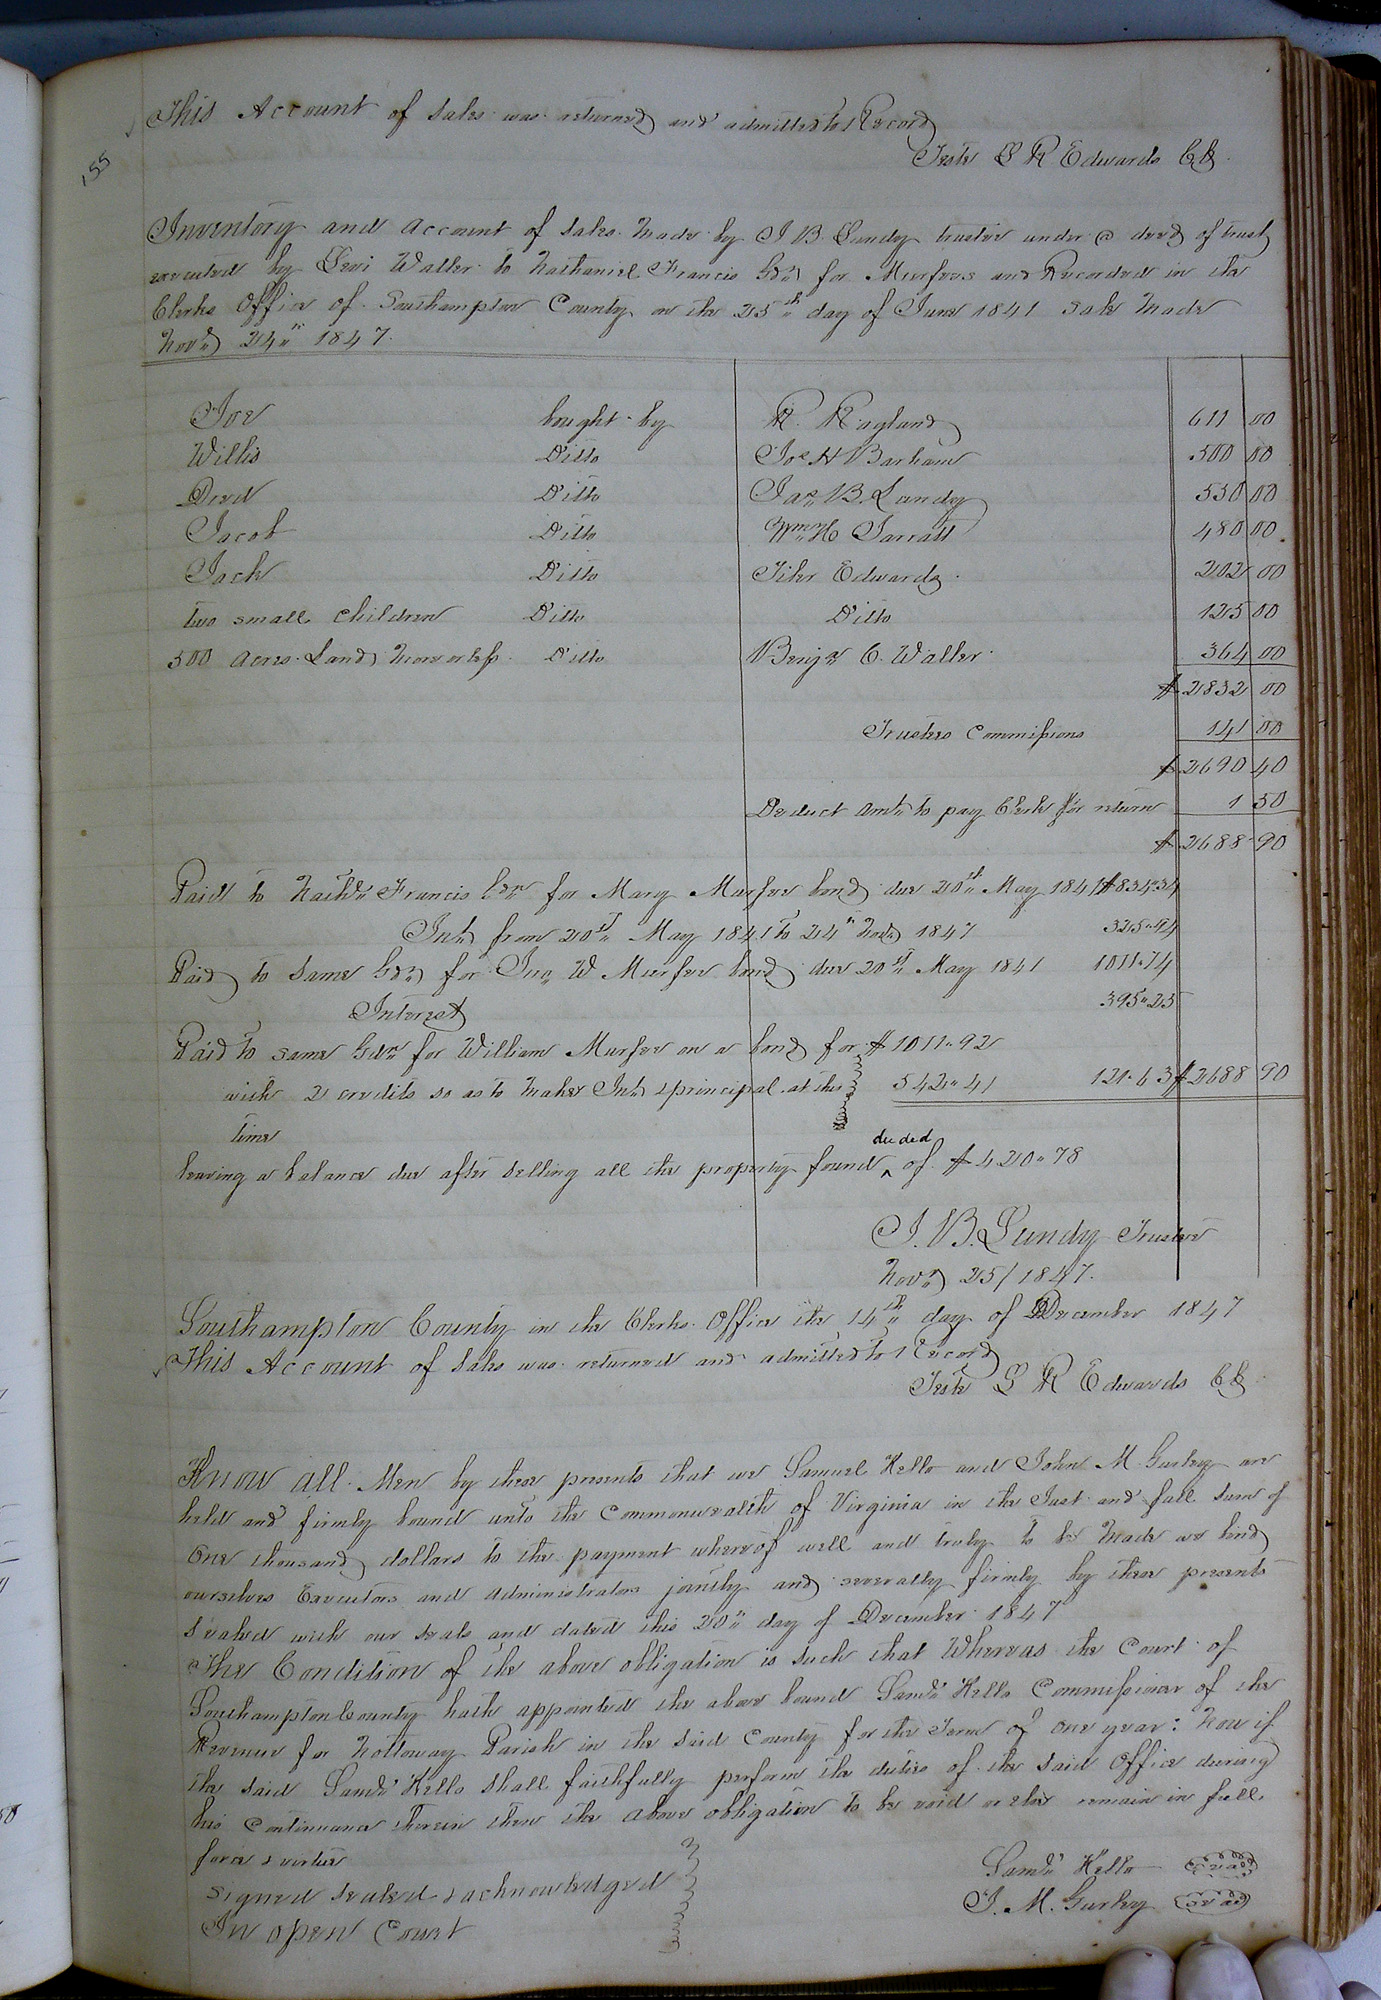 This Account of Sales was returned and admitted to Record
Teste L R Edwards Clk
155
Inventory and Account of Sales Made by J B Lundy trustee under a deed of trust
executed by Levi Waller to Nathaniel Francis Gdn for Murfees and Recorded in the
Clerks Office of Southampton County on the 25th day of June 1841 Sale Made
Novr 24th 1847.
Joe bought by R. Ragland 611 00
Willis Ditto Joe H Barham 500 00
Dred Ditto Jas B. Lundy 550 00
Jacob Ditto Wm H Jarratt 480 00
Jack Ditto Edwards 202 00
two small children Ditto Ditto 125 00
500 Acres Land More or less Ditto Benjn C. Waller 364 00
$2832 00
Trustees Commissions 141 00
$2690 40
Deduct Amt to pay Clerk for return 1 50
$2688 90
Paid to Nathl Francis Gdn for Mary Murfee bond due 20th May 1841 $834.34
Int from 20th May 1841 to 24th Novr 1847 325.94
Paid to Same Gdn for Jno W Murfee bond due 20th May 1841 1011.74
Interest 395.25
Paid to same Gdn for William Murfee on a bond for $1011.92
with 2 credits so as to Make Int & principal at this 542.41 121.63 $2688 90
time
leaving a balance due after selling all the property found deeded of $420.78
J. B. Lundy Trustee
Novr 25/1847.
Southampton County in the Clerks Office the 14th day of December 1847
This Account of Sales was returned and admitted to Record
Teste L R Edwards Clk
Know All Men by these presents that we Samuel Kello and John M. Gurley are
held and firmly bound unto the Commonwealth of Virginia in the Just and full sum of
One thousand dollars to the payment whereof well and truly to be Made we bind
ourselves Executors and Administrators jointly and severally firmly by these presents
Sealed with our seals and dated this 20th day of December 1847
The Condition of the above obligation is such that Whereas the Court of
Southampton County hath appointed the above bound Saml Kello Commissioner of the
Revenue for Nottoway Parish in the said County for the Term of one year: Now if
the said Saml Kello Shall faithfully perform the duties of the said Office during
his Continuance therein then the Above obligation to be void or else remain in full
force & virtue
Signed Sealed & acknowledged
In open Court
Saml Kello seal
J. M. Gurley seal